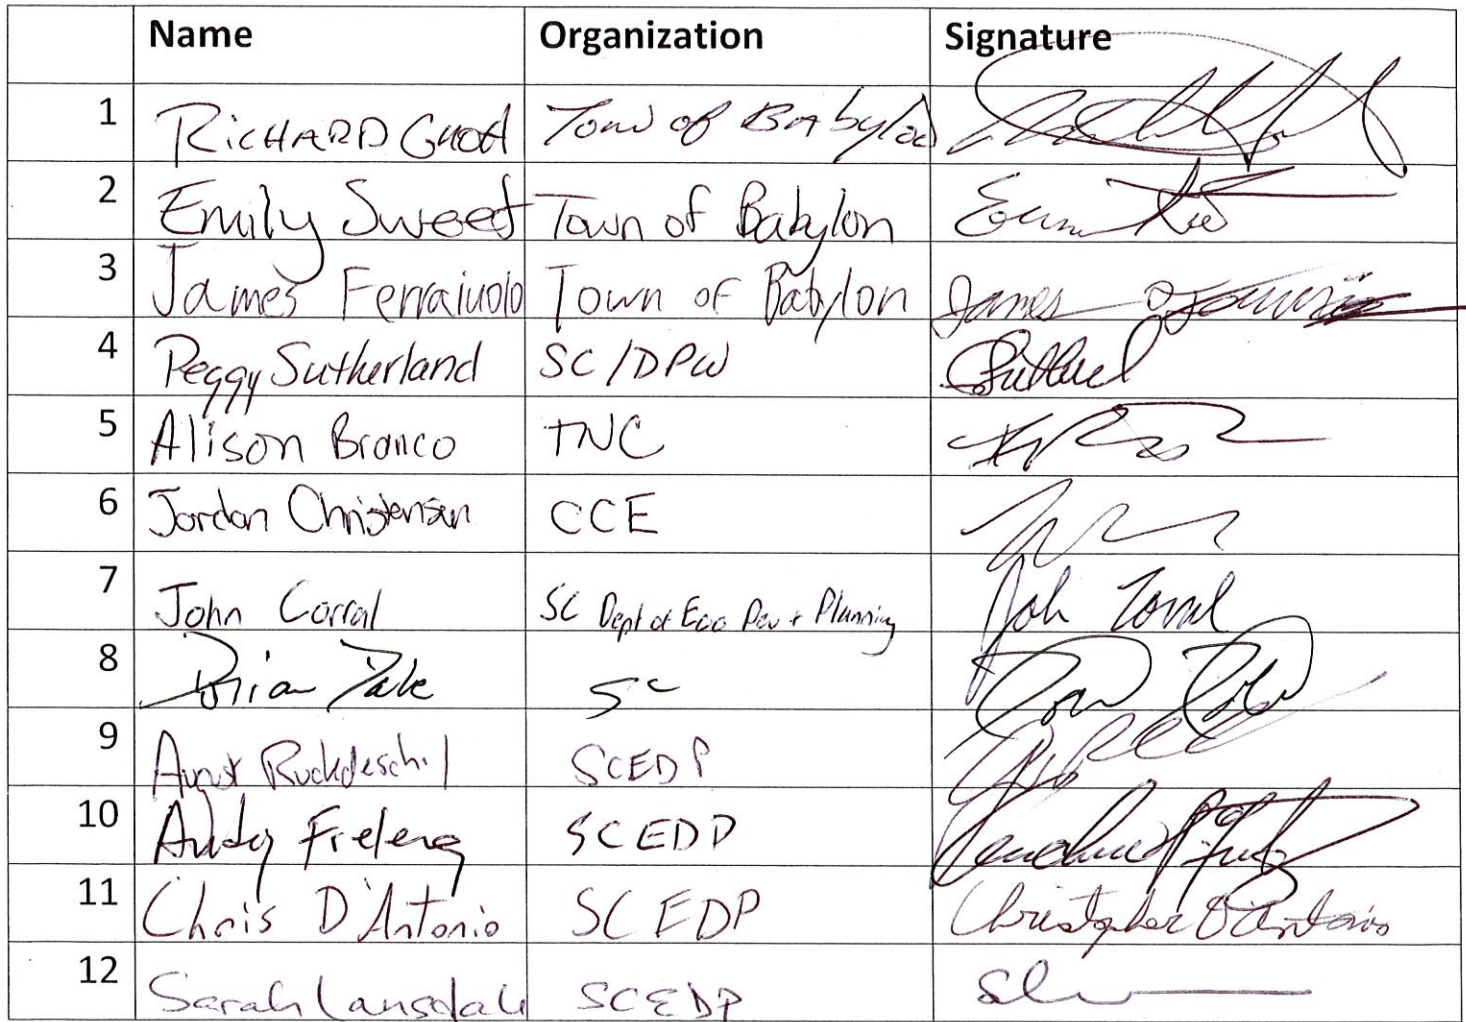 Name Organization Signature
1 RICHARD Town of Babylon
2 Emily Sweet Town of Babylon
3 James Ferraiuolo Town of Babylon James
4 Peggy Sutherland SC/DPW
5 Alison Branco TNC
6 Jordan Christensen CCE
7 John Corral SC Dept of Eco Dev + Planning John Corral
8 Dorian Dale SC
9 August Ruckdeschel SCEDP
10 Andy Freleng SCEDP
11 Chris D'Antonio SCEDP Christopher D'Antonio
12 Sarah Lansdale SCEDP